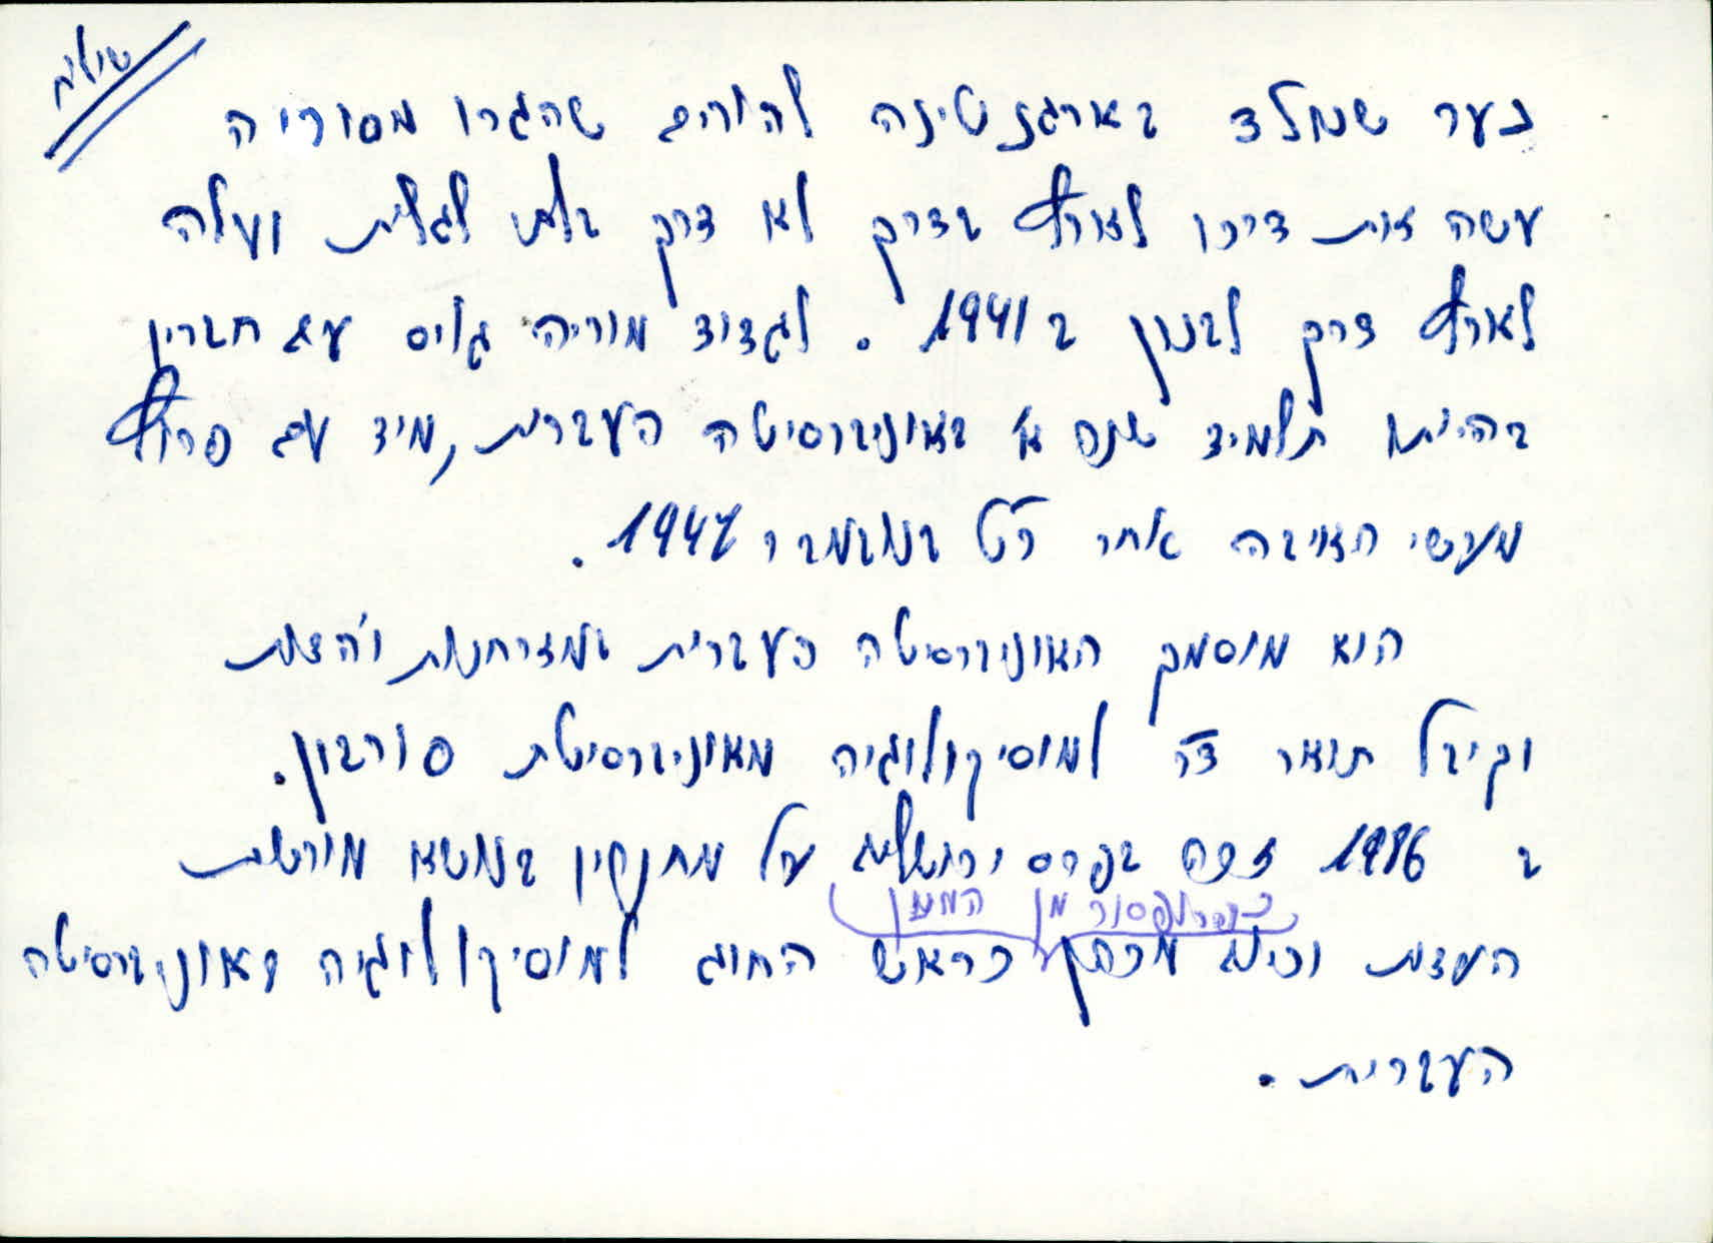 שילוח
נער שנולד בארגנטינה להורים שהגרו מסוריה
עשה זאת דרכו לארץ בדרך לא דרך בלתי לגלית ועלה
לארץ דרך לבנון ב 1941. לגדוד מוריה גויס עם חברין
בהיותו תלמיד שנה א' באוניברסיטה העברית, מיד עם פרוץ
מעשי האיבה אחר כ"ט בנובמבר 1947.
הוא מוסמך האוניברסיטה העברית במזרחנות ו
וקיבל תואר ד"ר למוסיקולוגיה מאוניברסיטת סורבון.
ב 1986 זכה בפרס ירושלים על מחקריו בנושא מורשת
כפרופסור מן המנין
העדות וכיום מכהן כראש החוג למוסיקולוגיה באוניברסיטה
העברית.